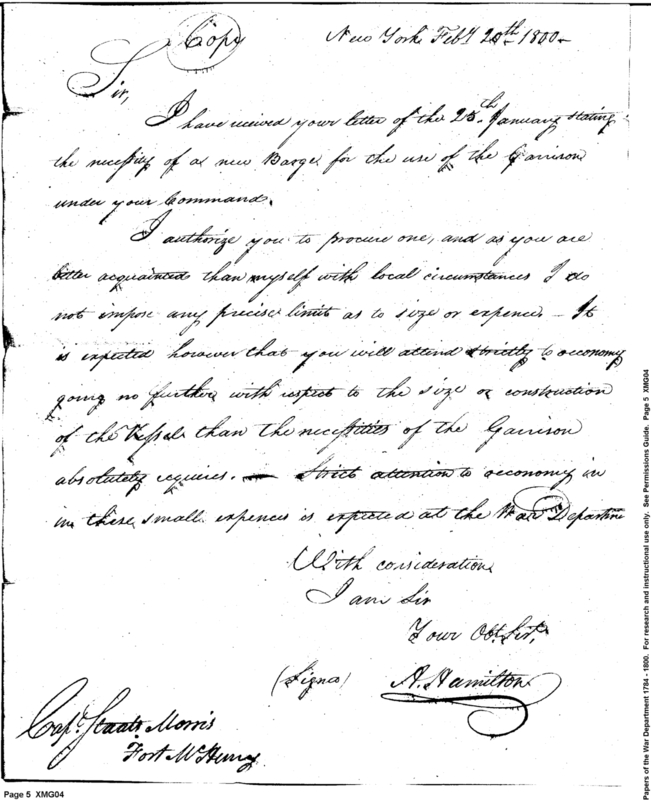 Copy
New York Feby 20th 1800-
Sir,
I have received your letter of the 25th January stating
the necessity of a new Barge for the use of the Garrison
under your Command.
I authorize you to procure one, and as you are
better acquainted than myself with local circumstances I do
not impose any precise limits as to size or expence - It
is expected however that you will attend strictly to oeconomy
going no further with respect to the size or construction
of the Vessel than the necessities of the Garrison
absolutely requires. — Strict attention to oeconomy in
in these small expences is expected at the War Departme
With consideration
I am Sir
Your Obt. Sert.
(Signed) A. Hamilton
Capt. Staats Morris
Fort McHenry
Page 5 XMG04
Papers of the War Department 1784 - 1800. For research and instructional use only. See Permissions Guide. Page 5 XMG04